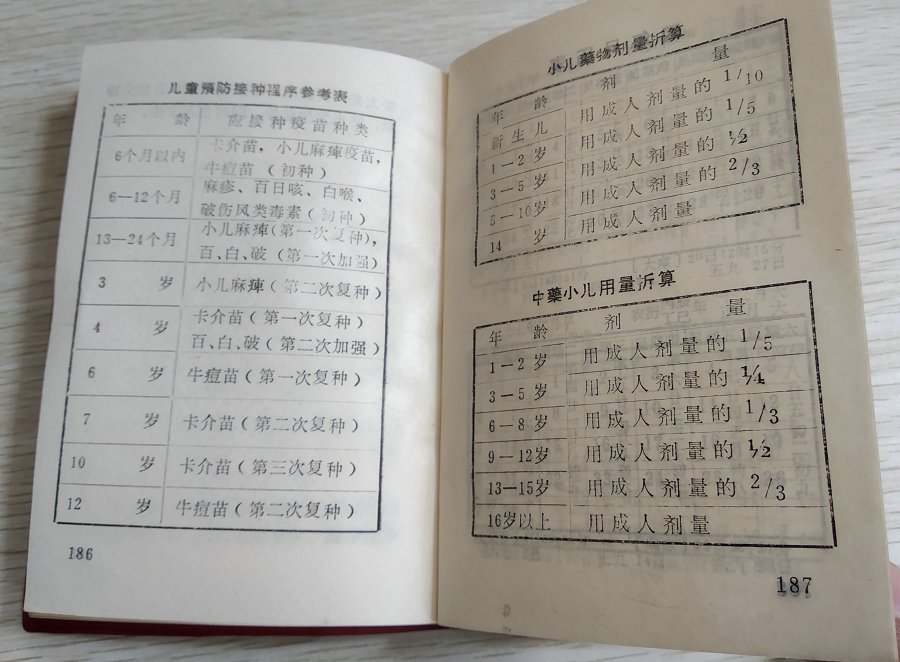 儿童预防接种程序参考表
年 龄 应接种疫苗种类
6个月以内 卡介苗，小儿麻痺疫苗，
牛痘苗（初种）
6—12个月 麻疹、百日咳、白喉、
破伤风类毒素（初种）
13—24个月 小儿麻痺(第一次复种)，
百、白、破（第一次加强）
3 岁 小儿麻痺（第二次复种）
4 岁 卡介苗（第一次复种）
百、白、破（第二次加强）
6 岁 牛痘苗（第一次复种）
7 岁 卡介苗（第二次复种）
10 岁 卡介苗（第三次复种）
12 岁 牛痘苗（第二次复种）
186
小儿藥物剂量折算
年 龄 剂 量
新生儿 用成人剂量的 1/10
1—2 岁 用成人剂量的 1/5
3—5 岁 用成人剂量的 1/2
5—10岁 用成人剂量的 2/3
14 岁 用成人剂量
中藥小儿用量折算
年 龄 剂 量
1—2 岁 用成人剂量的 1/5
3—5 岁 用成人剂量的 1/4
6—8 岁 用成人剂量的 1/3
9—12岁 用成人剂量的 1/2
13—15岁 用成人剂量的 2/3
16岁以上 用成人剂量
187